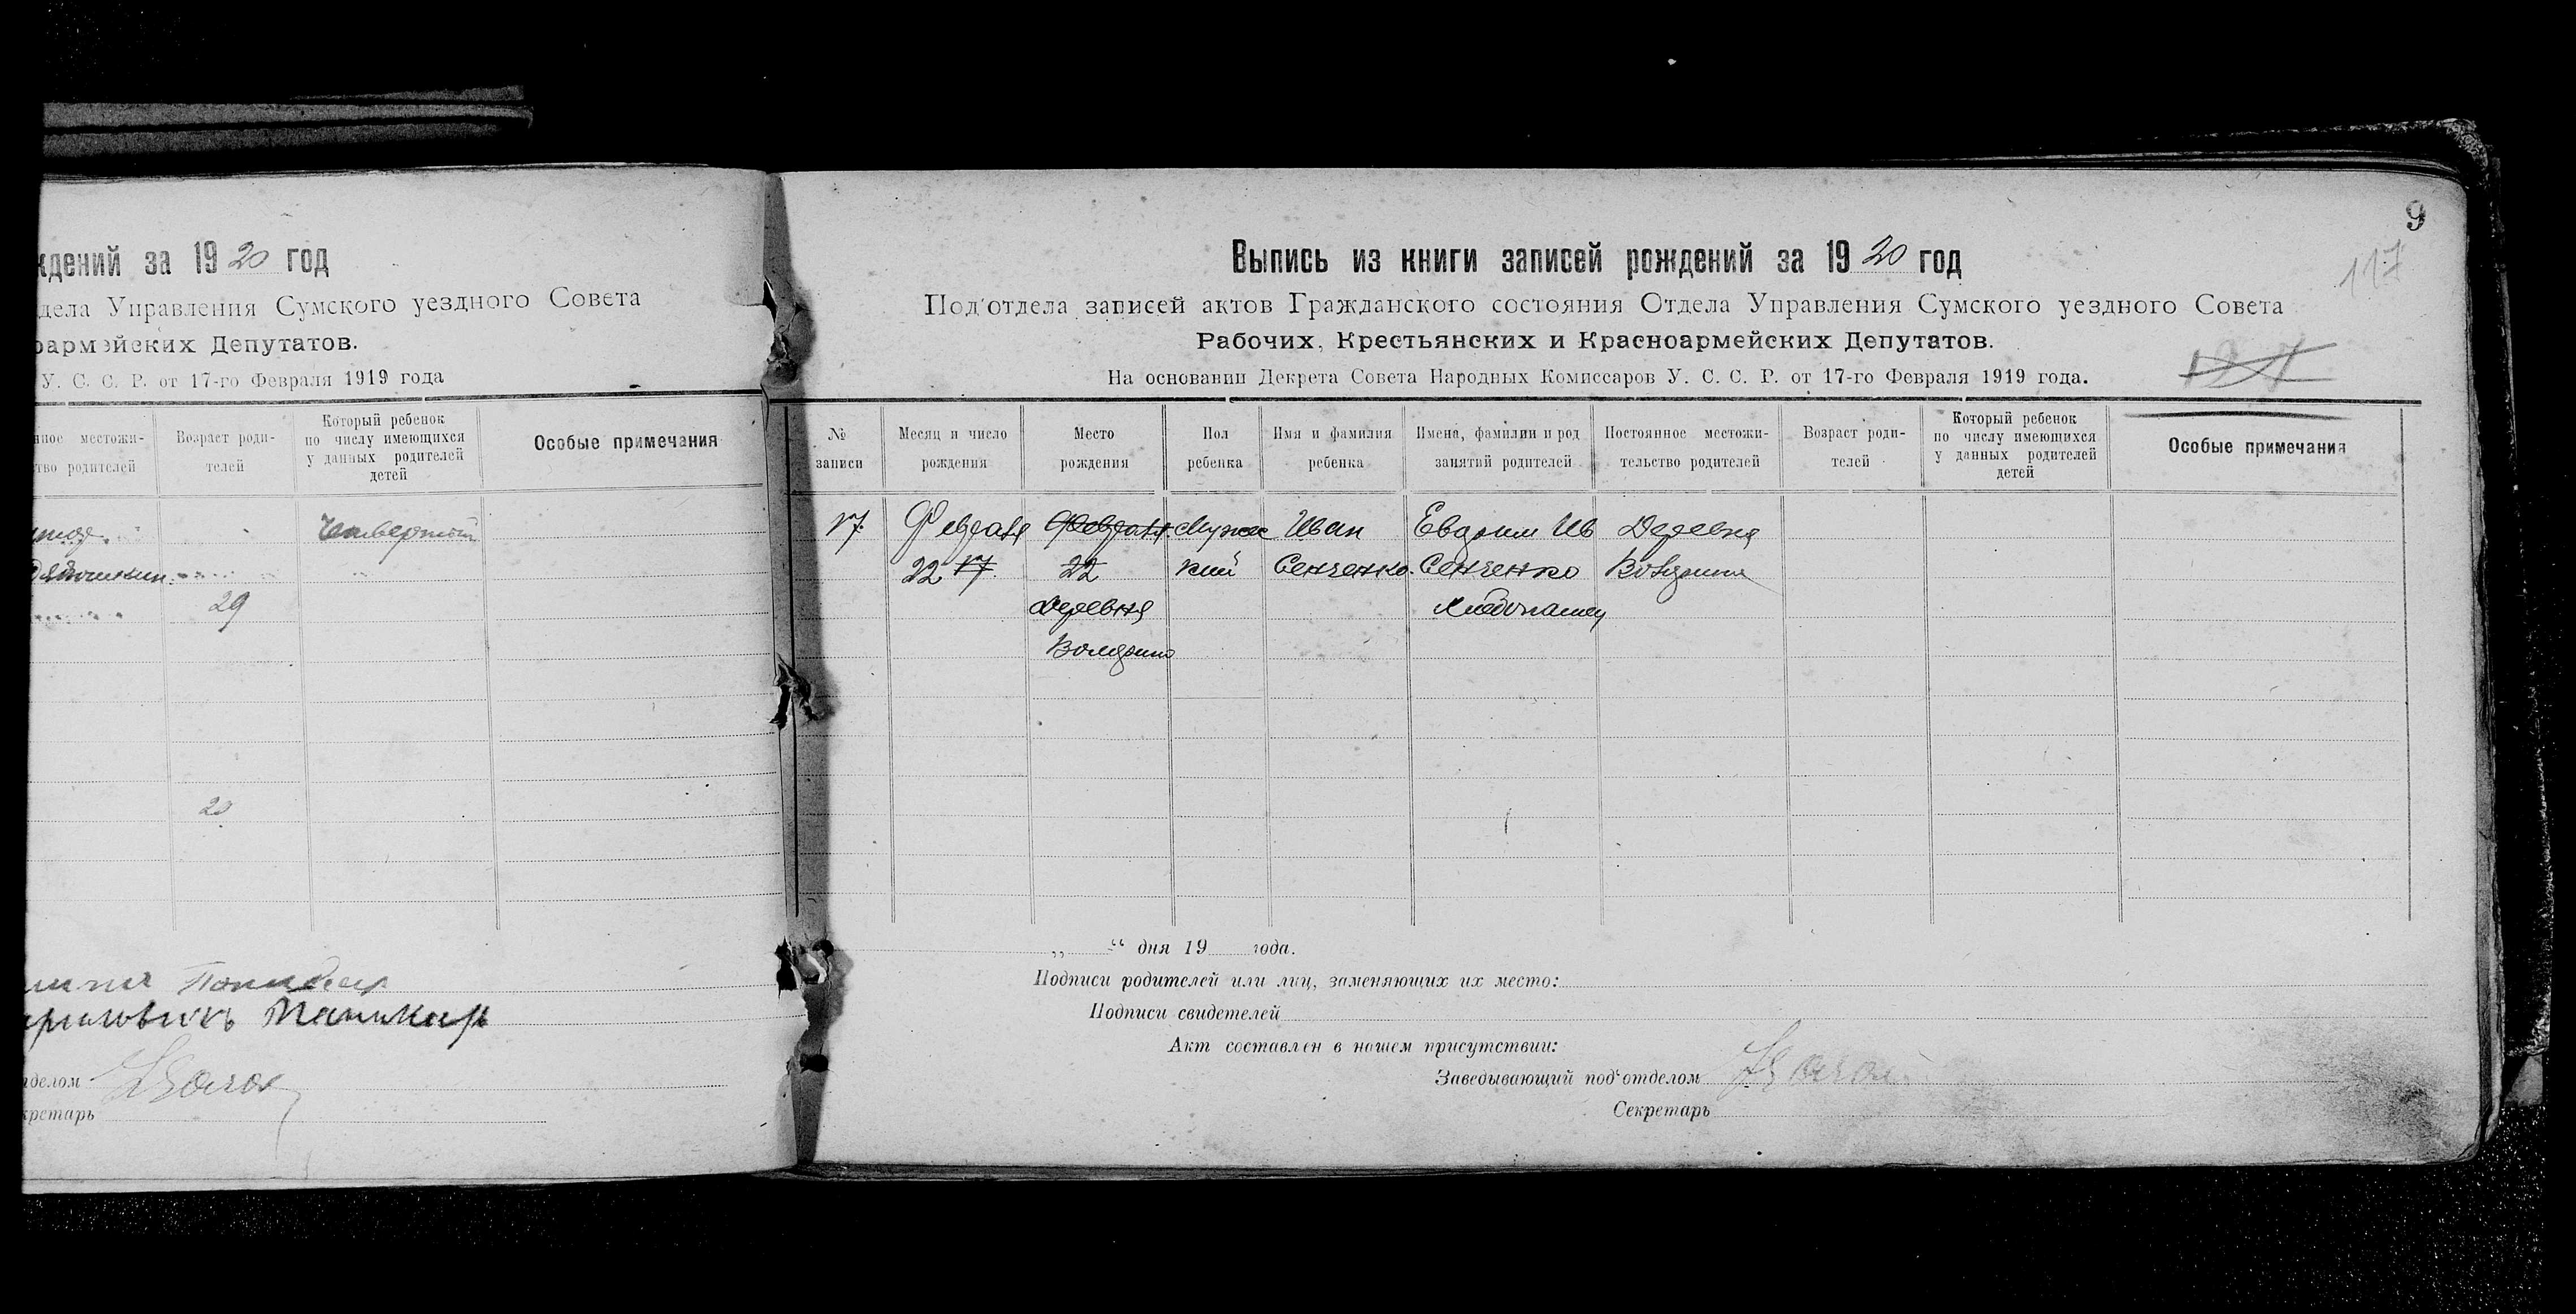 ждений за 1920 год
дела Управления Сумского уездного Совета
оармейских Депутатов.
У. С. С. Р. от 17-го Февраля 1919 года
нное местожи-
тво родителей
Возраст роди-
телей
Который ребенок
по числу имеющихся
у данных родителей
детей
Особые примечания
Четвертый
29
20
делом
кретарь
9
117
Выпись из книги записей рождений за 1920 год
Под'отдела записей актов Гражданского состояния Отдела Управления Сумского уездного Совета
Рабочих, Крестьянских и Красноармейских Депутатов.
На основании Декрета Совета Народных Комиссаров У. С. С. Р. от 17-го Февраля 1919 года.
№
записи
Месяц и число
рождения
Место
рождения
Пол
ребенка
Имя и фамилия
ребенка
Имена, фамилии и род
занятий родителей
Постоянное местожи-
тельство родителей
Возраст роди-
телей
Который ребенок
по числу имеющихся
у данных родителей
детей
Особые примечания
17.
Февраля
22 17.
Февраля.
22
Деревня
Мужс
кий
Иван
Сенченко.
Евдоким Ив
Сенченко
Хлебопашец
Деревня
„ “ дня 19 года.
Подписи родителей или лиц, заменяющих их место:
Подписи свидетелей
Акт составлен в нашем присутствии:
Заведывающий под'отделом
Секретарь